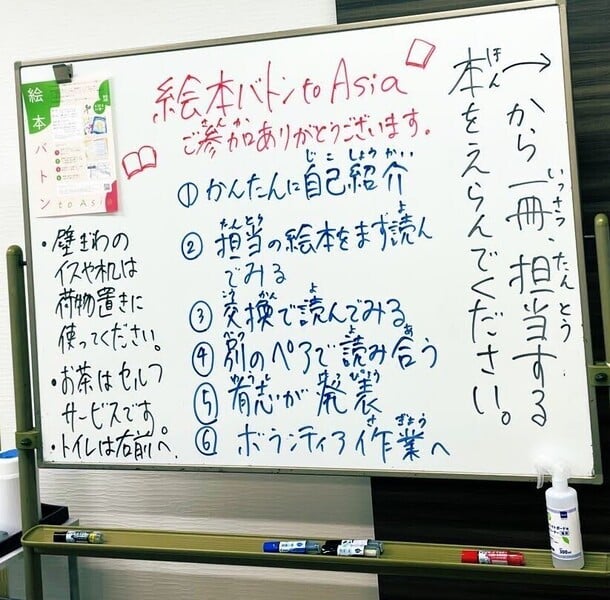 絵本バトンto Asia
ご参加ありがとうございます。
さんか
①かんたんに自己紹介
じこしょうかい
②担当の絵本をまず読ん
たんとう
よ
でみる
③交換で読んでみる
こうかん
よ
④別のペアで読み合う
べつ
よ
あ
⑤有志が発表
ゆうし
はっぴょう
⑥ボランティア作業へ
さぎょう
→から一冊、担当する
いっさつ
たんとう
本をえらんでください。
ほん
・壁ぎわの
イスや机は
荷物置きに
使ってください。
・お茶はセルフ
サービスです。
・トイレは右前へ
絵本
バトン
to Asia